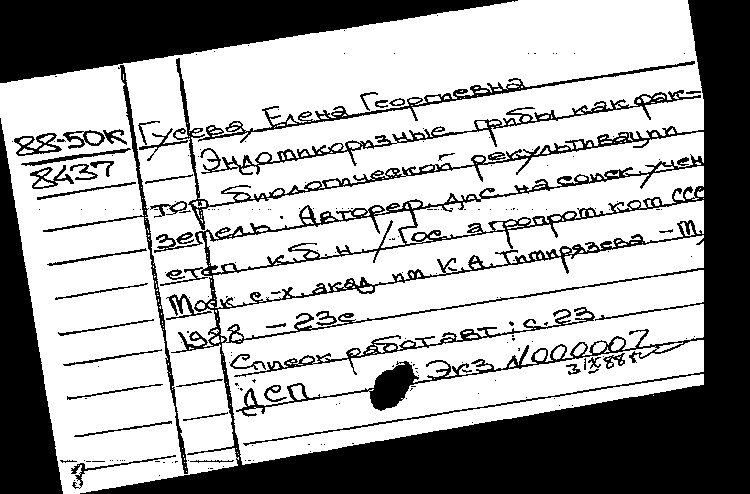 88-50К
8437
Гусева, Елена Георгиевна
Эндомикоризные грибы как фак-
тор биологической рекультивации
земель: Автореф. дис. на соиск. учен
степ. к.б.н. / Гос. агропром. ком ССС
Моск. с.-х. акад. им К.А. Тимирязева. - М.,
1988. - 23с.
Список работ авт.: с. 23.
ДСП Экз. N000007
8